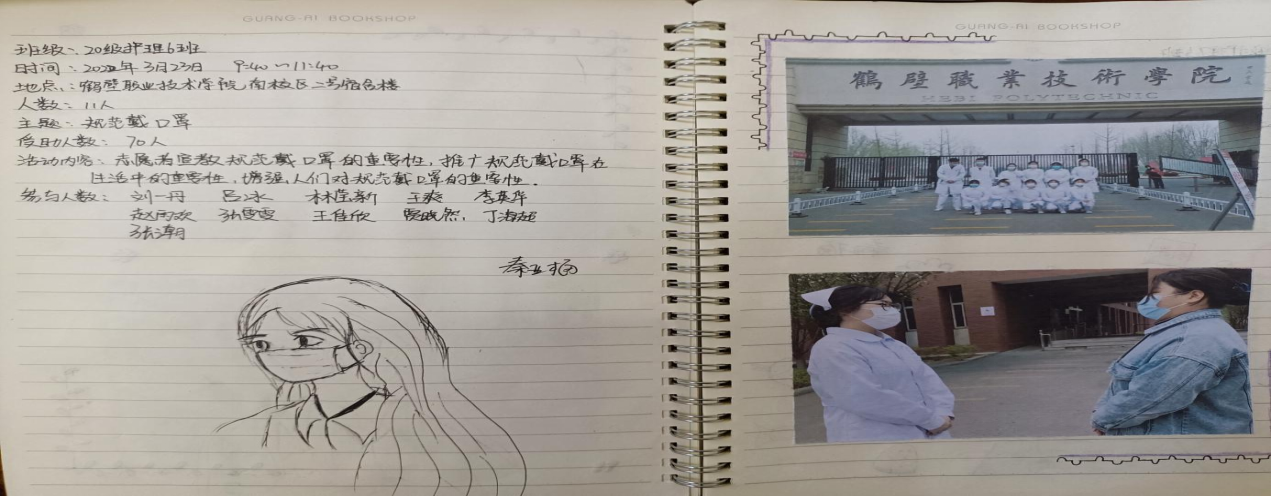 GUANG-AI BOOKSHOP
班级：20级护理6班
时间：2022年3月23日 9:40~11:40
地点：鹤壁职业技术学院南校区二号宿舍楼
人数：11人
主题：规范戴口罩
受助人数：70人
活动内容：志愿者宣教规范戴口罩的重要性，推广规范戴口罩在
生活中的重要性，增强人们对规范戴口罩的重要性.
参与人数：刘一丹 吕冰 林莹新 王爽 李英华
赵雨欢 张雪雯 王佳欣 丁海超
张潮
秦亚杨
GUANG-AI BOOKSHOP
鶴壁職業技術學院
HEBI POLYTECHNIC